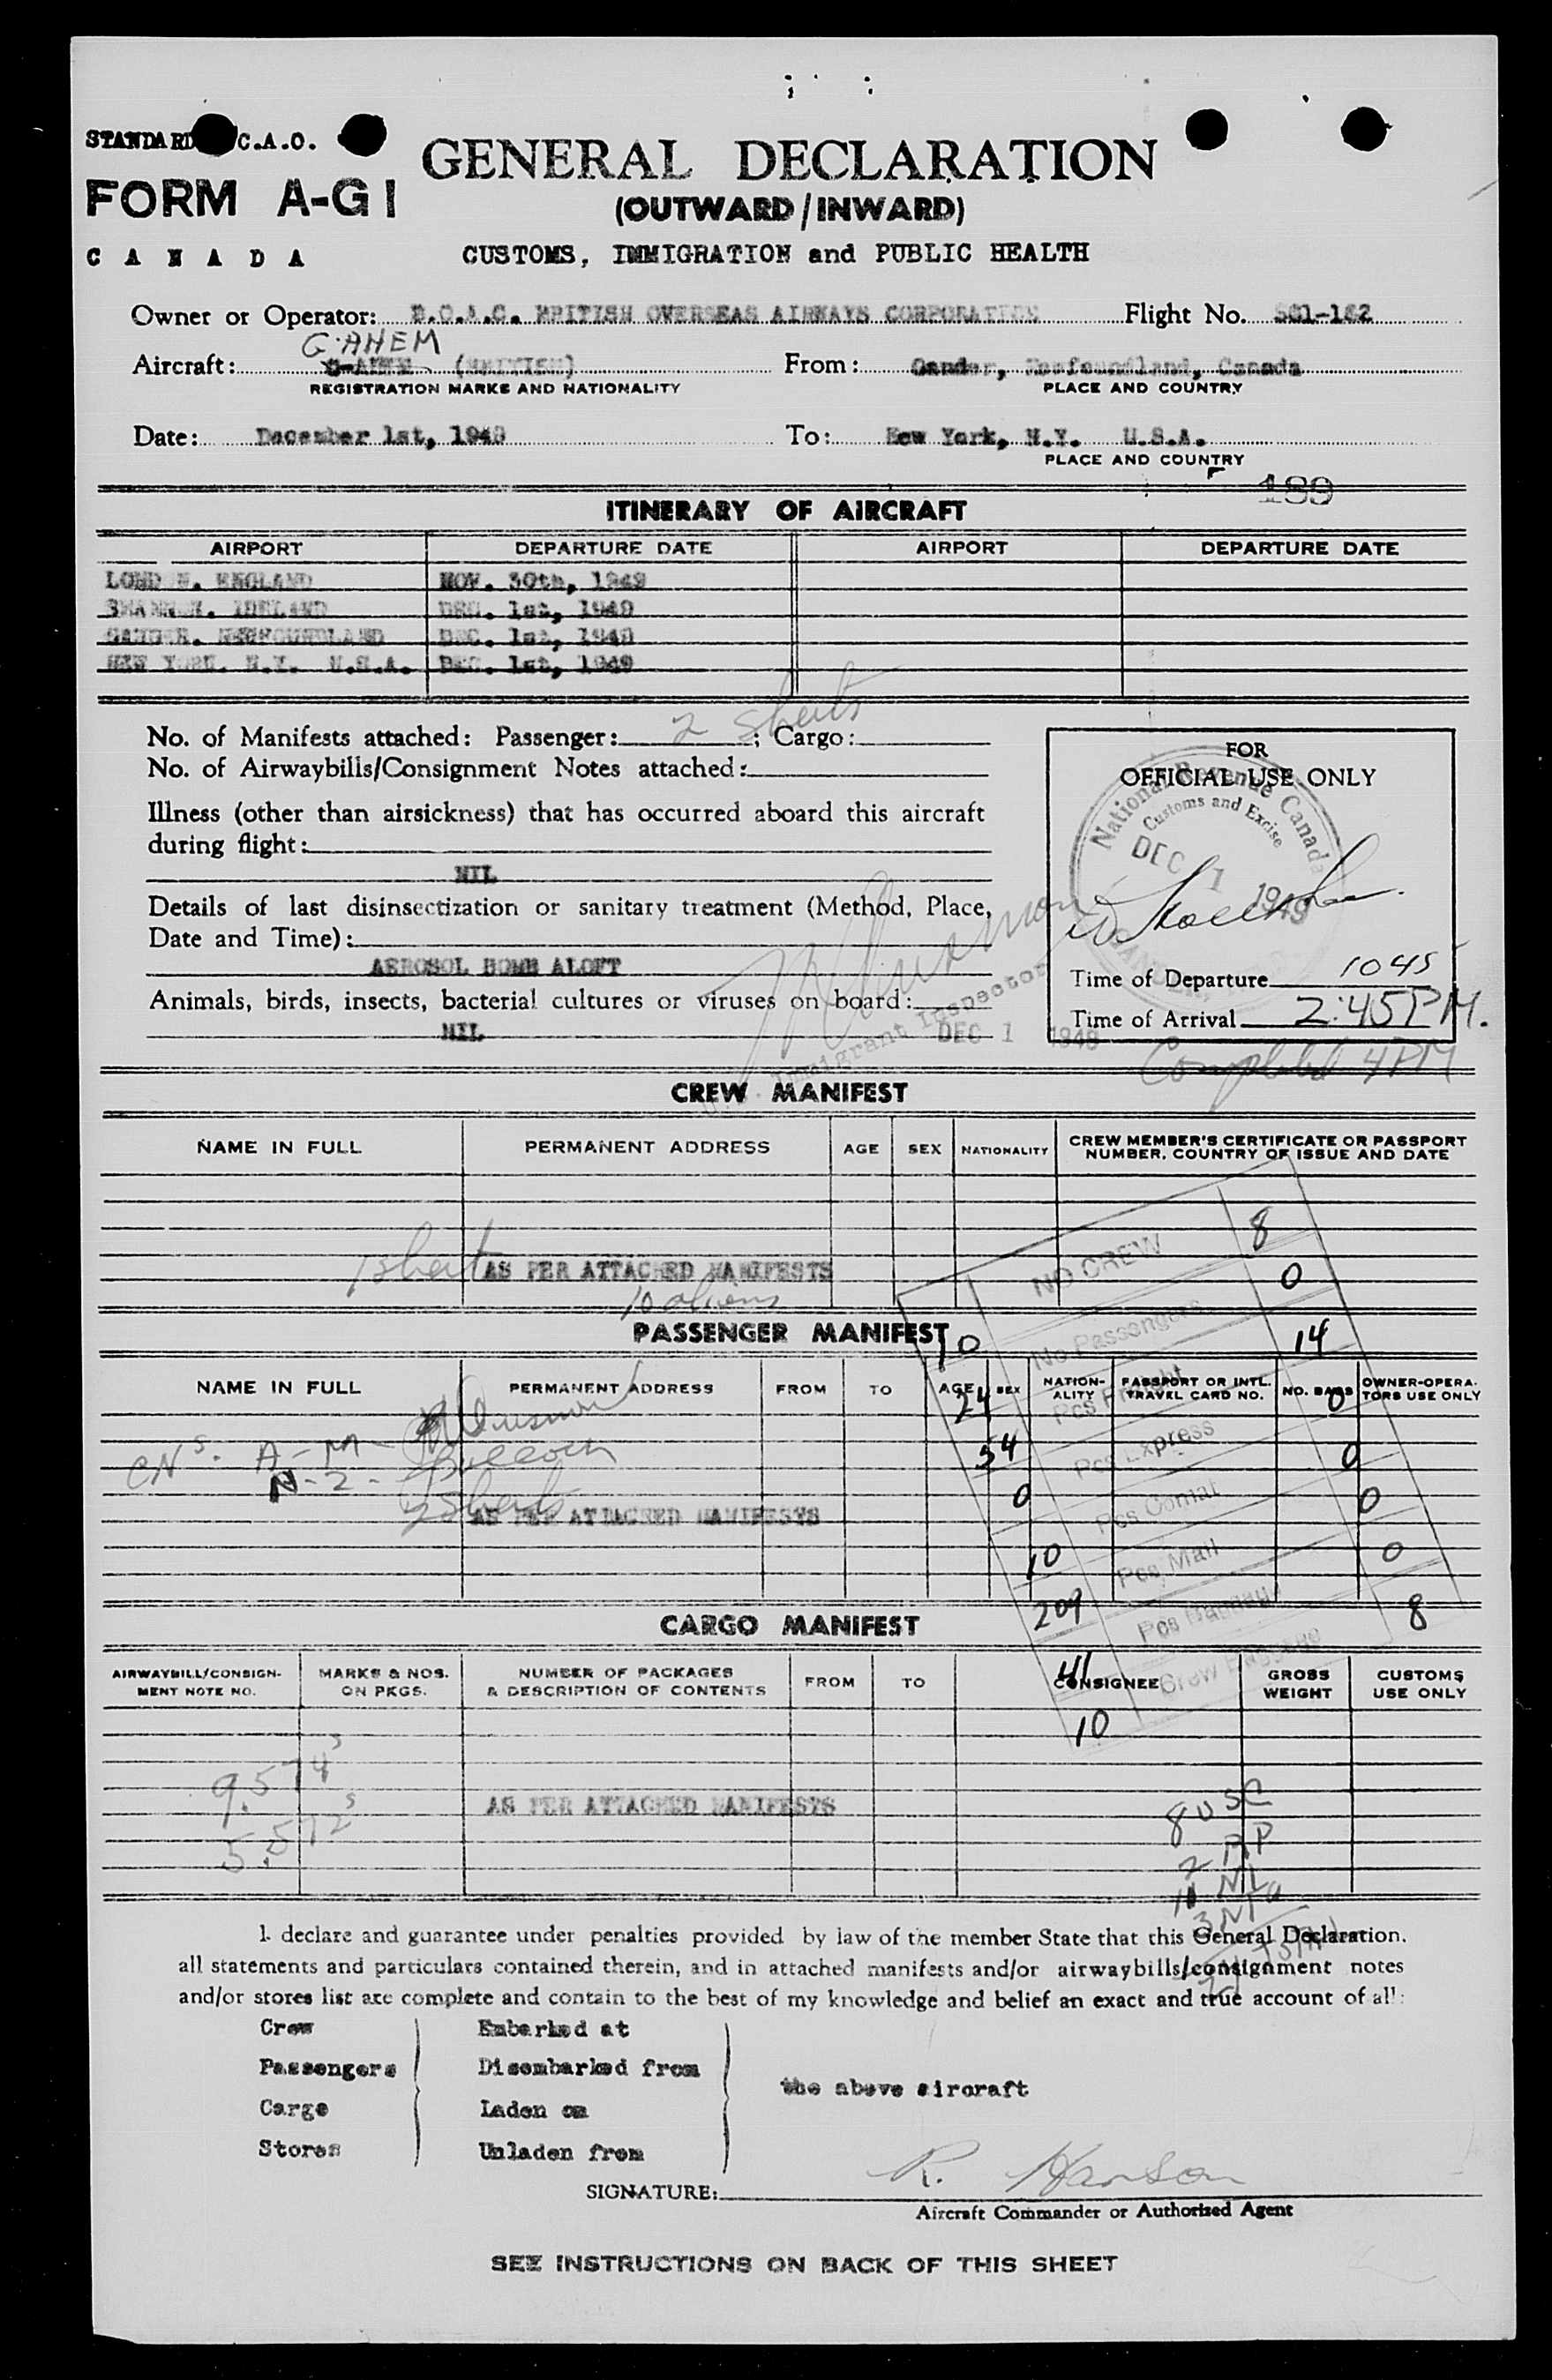 STANDARD C.A.O.
GENERAL DECLARATION
FORM A-G1
(OUTWARD/INWARD)
CANADA
CUSTOMS, IMMIGRATION and PUBLIC HEALTH
Owner or Operator: B.O.A.C. BRITISH OVERSEAS AIRWAYS CORPORATION Flight No.
G-AHEM
Aircraft: (BRITISH) From: Gander, Newfoundland, Canada
REGISTRATION MARKS AND NATIONALITY PLACE AND COUNTRY
Date: December 1st, 1949 To: New York, N.Y. U.S.A.
PLACE AND COUNTRY
189
ITINERARY OF AIRCRAFT
AIRPORT DEPARTURE DATE AIRPORT DEPARTURE DATE
LONDON. ENGLAND NOV. 30th, 1949
SHANNON. IRELAND DEC. 1st, 1949
GANDER. NEWFOUNDLAND DEC. 1st, 1949
NEW YORK. N.Y. U.S.A. DEC. 1st, 1949
No. of Manifests attached: Passenger: 2 sheets; Cargo:
No. of Airwaybills/Consignment Notes attached:
Illness (other than airsickness) that has occurred aboard this aircraft
during flight:
NIL
Details of last disinsectization or sanitary treatment (Method, Place,
Date and Time):
AEROSOL BOMB ALOFT
Animals, birds, insects, bacterial cultures or viruses on board:
NIL
FOR
OFFICIAL USE ONLY
National Revenue Canada
Customs and Excise
DEC 1 1949
Time of Departure 1045
Time of Arrival 2:45 PM.
Completed 4 PM
Immigrant Inspector
DEC 1 1949
CREW MANIFEST
NAME IN FULL PERMANENT ADDRESS AGE SEX NATIONALITY CREW MEMBER'S CERTIFICATE OR PASSPORT
NUMBER, COUNTRY OF ISSUE AND DATE
1 sheet AS PER ATTACHED MANIFESTS
10 aliens
NO CREW 8
0
PASSENGER MANIFEST
10 No Passengers 14
NAME IN FULL PERMANENT ADDRESS FROM TO AGE SEX NATION-
ALITY PASSPORT OR INTL.
TRAVEL CARD NO. NO. BAGS OWNER-OPERA-
TORS USE ONLY
24 Pcs Freight 0
CNs. A-M-
54 Pcs Express 0
N-Z-
0 Pcs Comat 0
2 Sheets
AS PER ATTACHED MANIFESTS
10 Pcs Mail 0
209 Pcs Baggage 8
41 Crew Baggage
10
CARGO MANIFEST
AIRWAYBILL/CONSIGN-
MENT NOTE NO. MARKS & NOS.
ON PKGS. NUMBER OF PACKAGES
& DESCRIPTION OF CONTENTS FROM TO CONSIGNEE GROSS
WEIGHT CUSTOMS
USE ONLY
AS PER ATTACHED MANIFESTS
8 USC
I declare and guarantee under penalties provided by law of the member State that this General Declaration.
all statements and particulars contained therein, and in attached manifests and/or airwaybills/consignment notes
and/or stores list are complete and contain to the best of my knowledge and belief an exact and true account of all:
Crew Embarked at
Passengers Disembarked from
the above aircraft
Cargo Laden on
Stores Unladen from
SIGNATURE: R. Hanson
Aircraft Commander or Authorized Agent
SEE INSTRUCTIONS ON BACK OF THIS SHEET